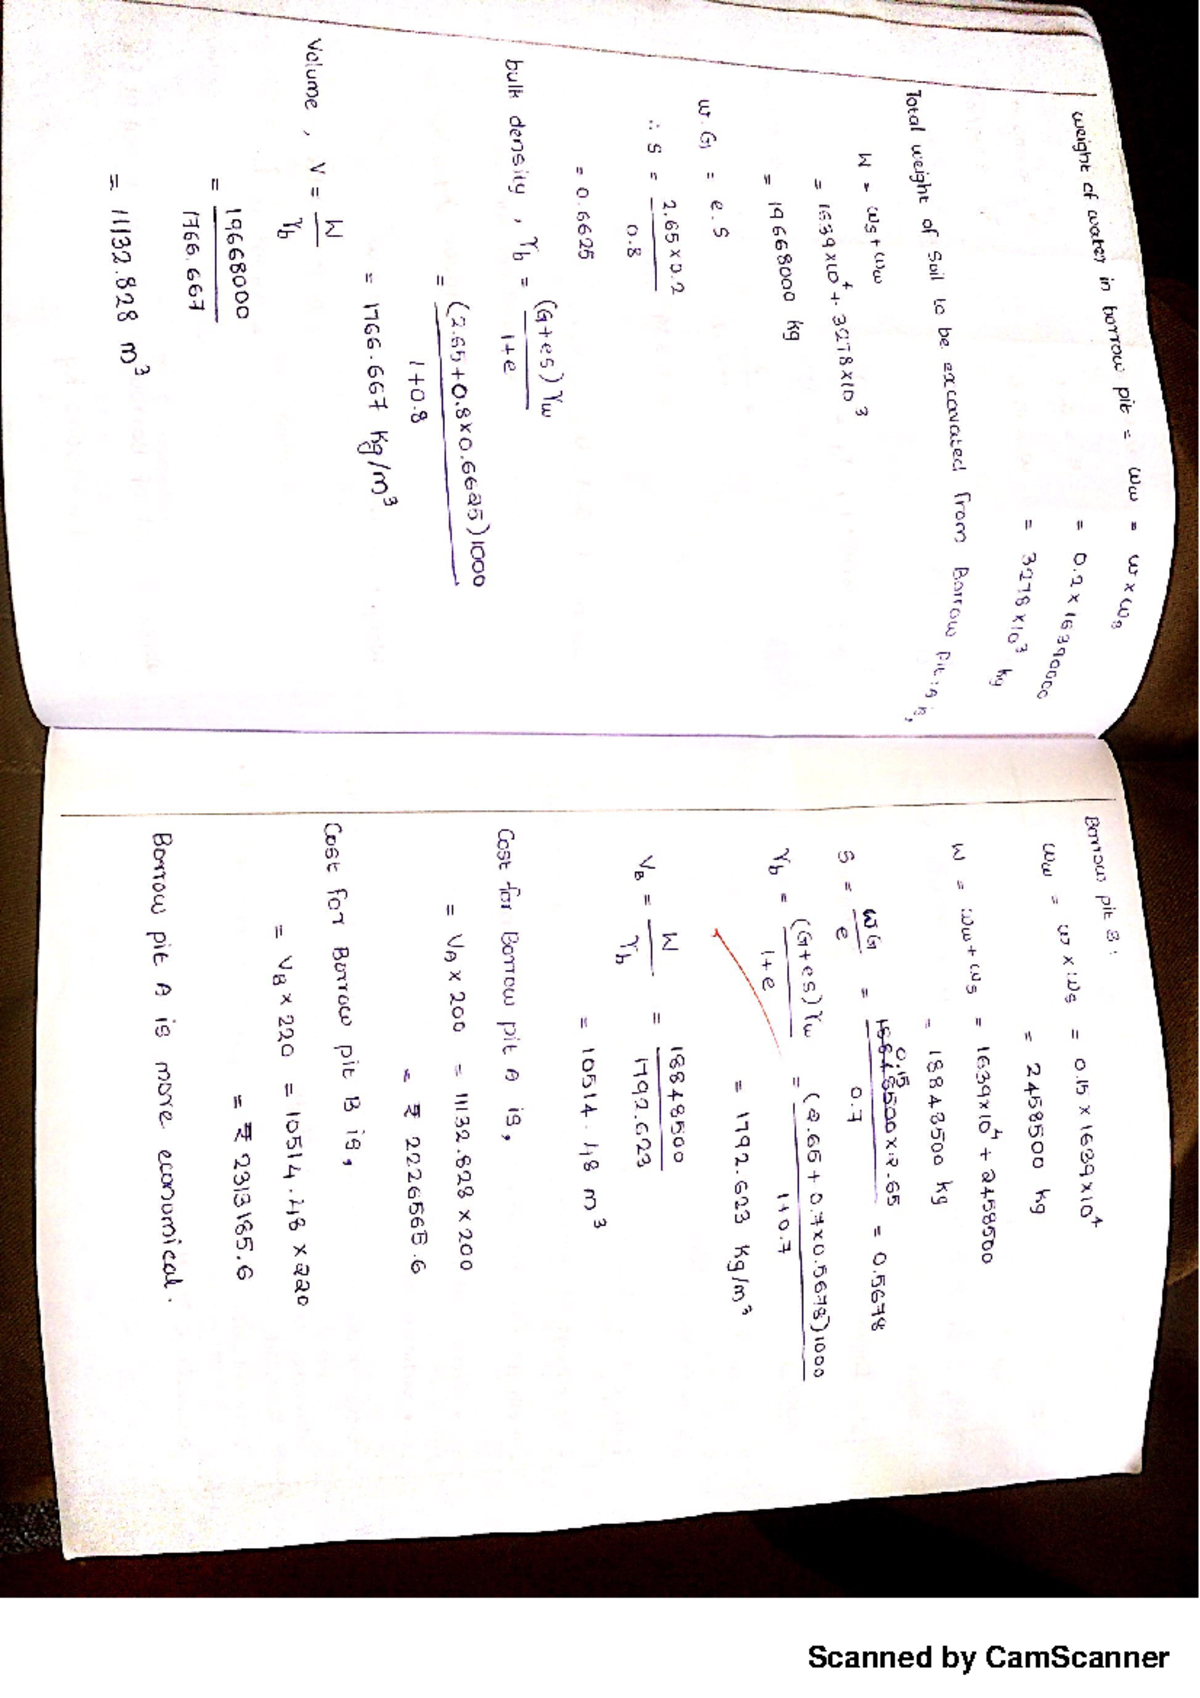 weight of water in borrow pit = ωw = w × ωs
= 0.2 × 16390000
= 3278 × 10³ kg
Total weight of soil to be excavated from Borrow pit
W = ωs + ωw
= 1639×10⁴ + 3278×10³
= 19668000 kg
w.G = e.s
∴ s = 2.65 × 0.2 / 0.8
= 0.6625
bulk density, γb = (G+es)γw / 1+e
= (2.65+0.8×0.6625)1000 / 1+0.8
= 1766.667 kg/m³
Volume, V = W / γb
= 19668000 / 1766.667
= 11132.828 m³
Borrow pit B:
ωw = w × ωs = 0.15 × 1639×10⁴
= 2458500 kg
W = ωw + ωs = 1639×10⁴ + 2458500
= 18848500 kg
S = wG / e = 0.15 × 2.65 / 0.7 = 0.5678
γb = (G+es)γw / 1+e = (2.65+0.7×0.5678)1000 / 1+0.7
= 1792.623 kg/m³
VB = W / γb = 18848500 / 1792.623
= 10514.48 m³
Cost for Borrow pit A is,
= VA × 200 = 11132.828 × 200
= ₹ 2226565.6
Cost for Borrow pit B is,
= VB × 220 = 10514.48 × 220
= ₹ 2313185.6
Borrow pit A is more economical.
Scanned by CamScanner